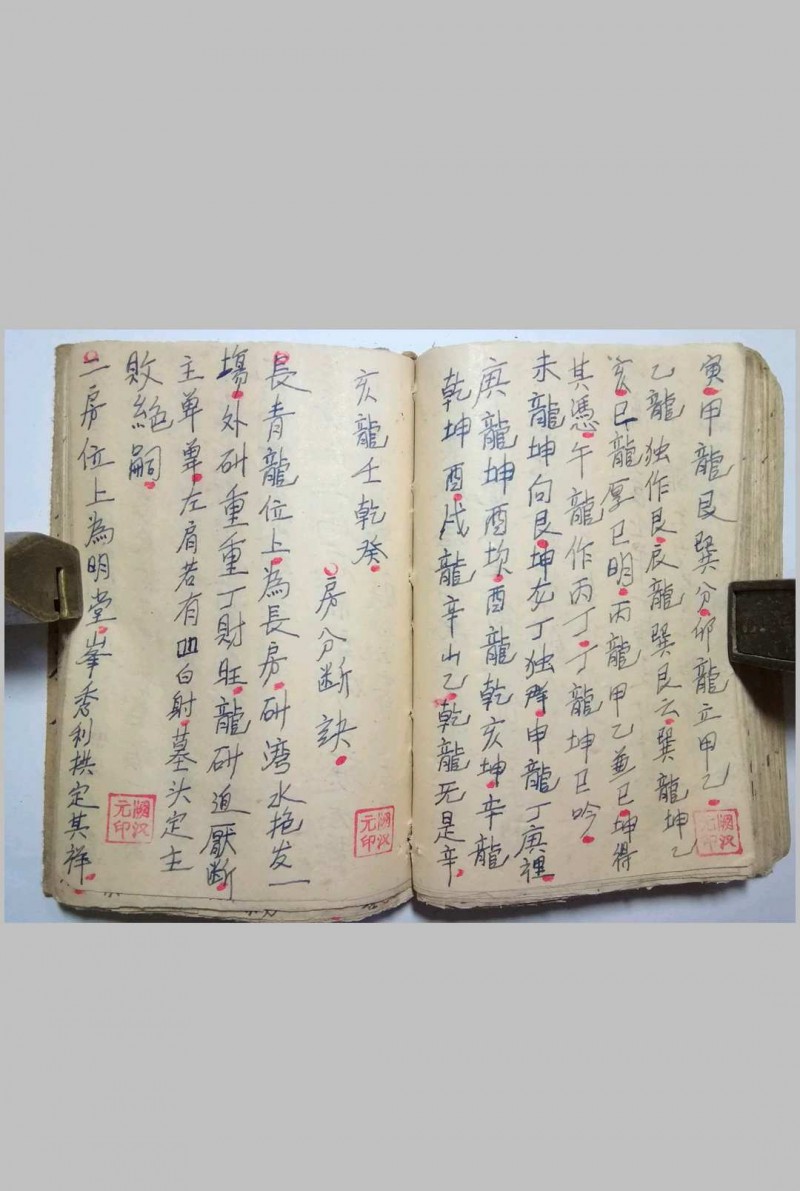 寅甲龍艮巽分卯龍立甲乙
乙龍独作艮辰龍巽艮云巽龍坤乙
亥巳龍厚已明丙龍甲乙並巳坤得
其憑午龍作丙丁丁龍坤巳吟
未龍坤向艮坤龙丁独降申龍丁庚裡
庚龍坤酉坎酉龍乾亥坤辛龍
乾坤酉戌龍辛山乙乾龍死是辛
亥龍壬乾癸
房分断訣
長青龍位上為長房砂湾水抱发一
塲外砂重重丁財旺龍砂迫壓断
主单单左肩若有凹白射墓头定主
敗絕嗣
二房位上為明堂峯秀利拱定其祥
元印
元印
元印